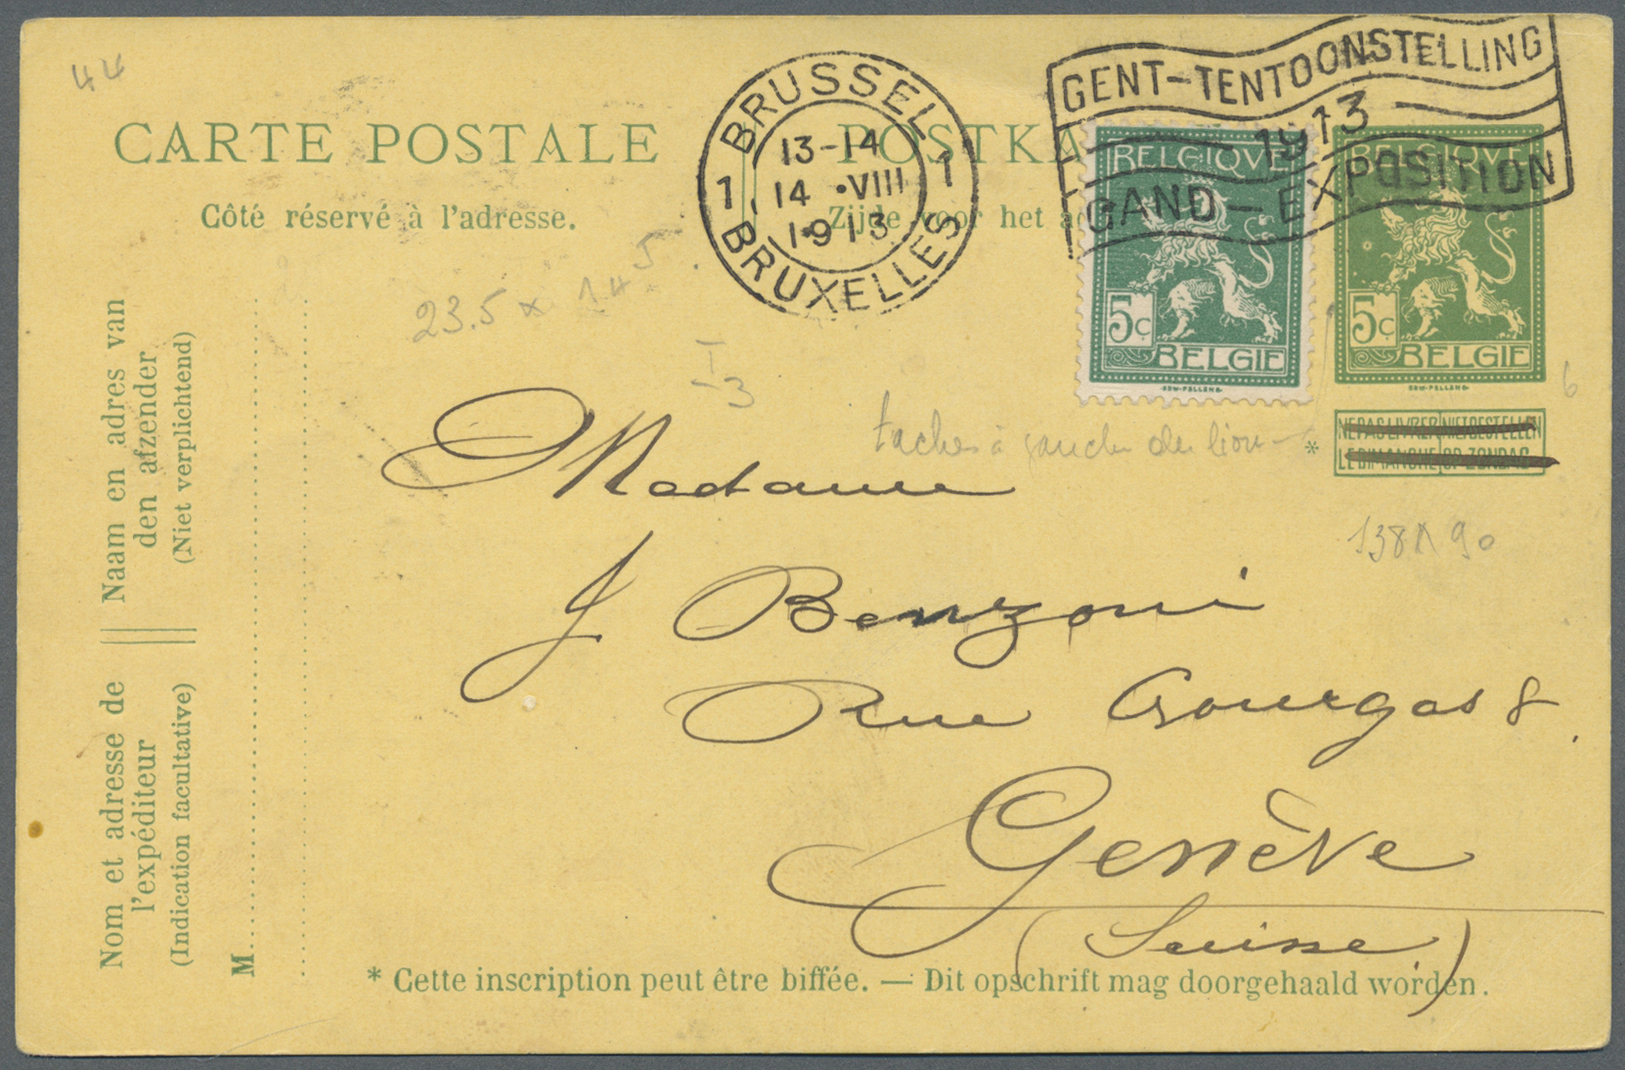 44
CARTE POSTALE
POSTKA
Côté réservé à l'adresse.
Zijde voor het a
BRUSSEL
13-14
1 14 •VIII 1
1913
BRUXELLES
GENT-TENTOONSTELLING
1913
GAND-EXPOSITION
BELGIQVE
5c
BELGIE
BELGIQVE
5c
BELGIE
23.5 x 14 5
I
3
6
taches à gauche du lion
*
NE PAS LIVRER NIET BESTELLEN
LE DIMANCHE OP ZONDAG
138A 90
Naam en adres van
den afzender
(Niet verplichtend)
Nom et adresse de
l'expéditeur
(Indication facultative)
M
Madame
J Benzoni
Rue Gourgas 8.
Genève
(Suisse)
* Cette inscription peut être biffée. — Dit opschrift mag doorgehaald worden.